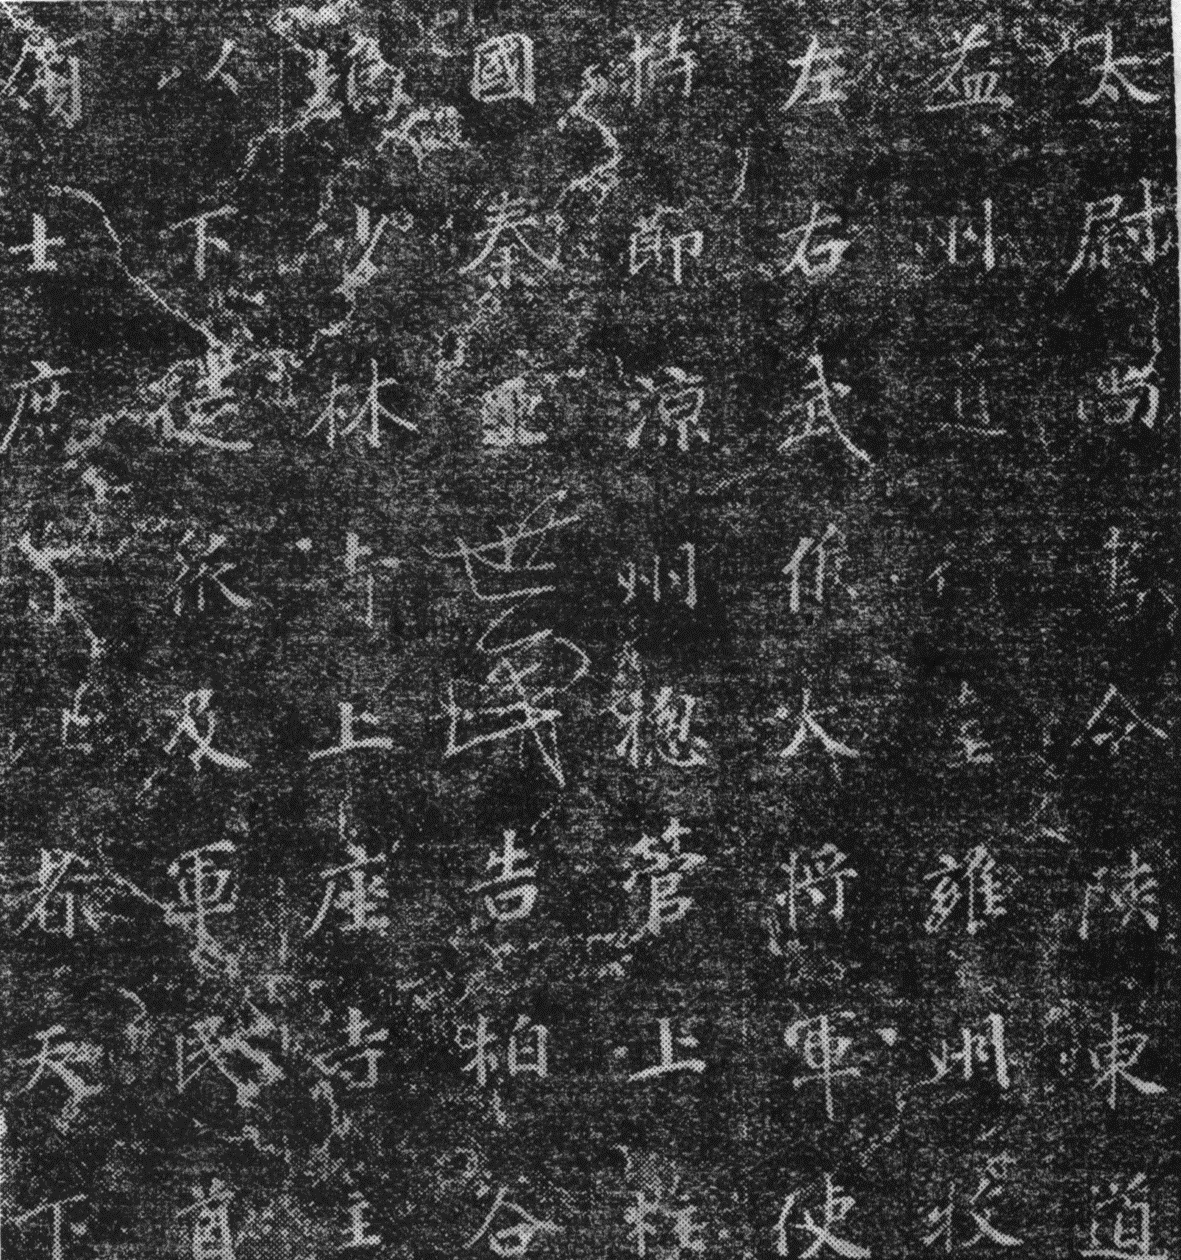 太尉尚書令陝東道
益州道行臺雍州牧
左右武候大將軍使
持節涼州總管上柱
國秦王世民告柏谷
塢少林寺上座寺主
以下徒衆及軍民首
領士庶等比者天下